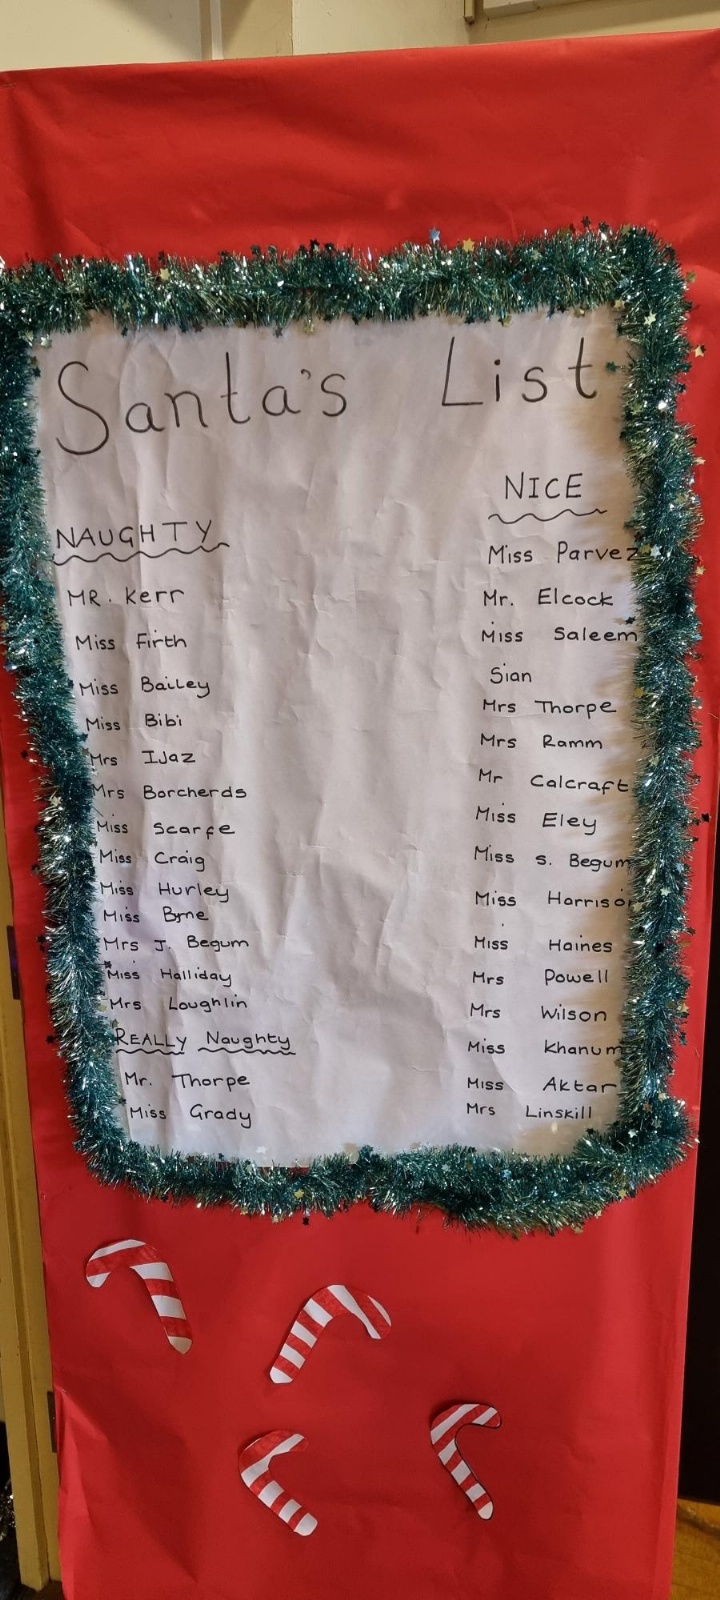 Santa's List
NAUGHTY
MR. Kerr
Miss Firth
Miss Bailey
Miss Bibi
Mrs IJaz
Mrs Borcherds
Miss Scarfe
Miss Craig
Miss Hurley
Miss Byrne
Mrs J. Begum
Miss Halliday
Mrs Loughlin
REALLY Naughty
Mr. Thorpe
Miss Grady
NICE
Miss Parvez
Mr. Elcock
Miss Saleem
Sian
Mrs Thorpe
Mrs Ramm
Mr Calcraft
Miss Eley
Miss S. Begum
Miss Harrison
Miss Haines
Mrs Powell
Mrs Wilson
Miss Khanum
Miss Aktar
Mrs Linskill